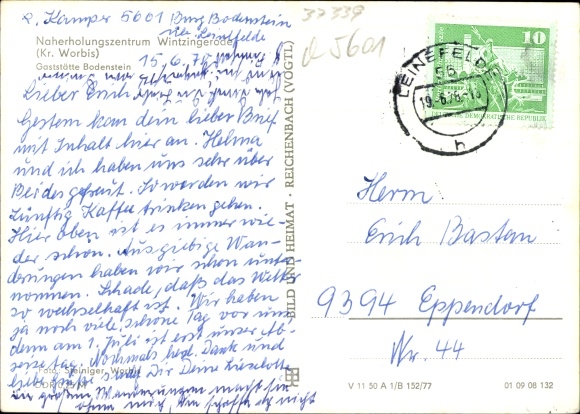 R. Kamper 5601 Burg Bodenstein
über Leinefelde
Naherholungszentrum Wintzingerode
(Kr. Worbis)
Gaststätte Bodenstein
15.6.78
Lieber Erich
Gestern kam dein lieber Brief
mit Inhalt hier an. Helma
und ich haben uns sehr über
Beides gefreut. So werden wir
zünftig Kaffee trinken gehen.
Hier oben ist es immer wie-
der schön. Ausgiebige Wan-
derungen haben wir schon unter-
nommen. Schade, daß das Wetter
so wechselhaft ist. Wir haben
ja noch viele schöne Tage vor uns
denn am 1. Juli ist erst unser Ab-
reisetag. Nochmals herzl. Dank und
liebe Grüße Dir Deine Lieselotte
großen Wanderungen macht sie
ohne mich, das schaffe ich nicht
Foto: Steiniger, Worbis
BILD UND HEIMAT · REICHENBACH (VOGTL)
37339
5601
10
DEUTSCHE DEMOKRATISCHE REPUBLIK
LEINEFELDE
56
h
Herrn
Erich Bastan
9394 Eppendorf
Nr. 44
V 11 50 A 1/B 152/77
01 09 08 132